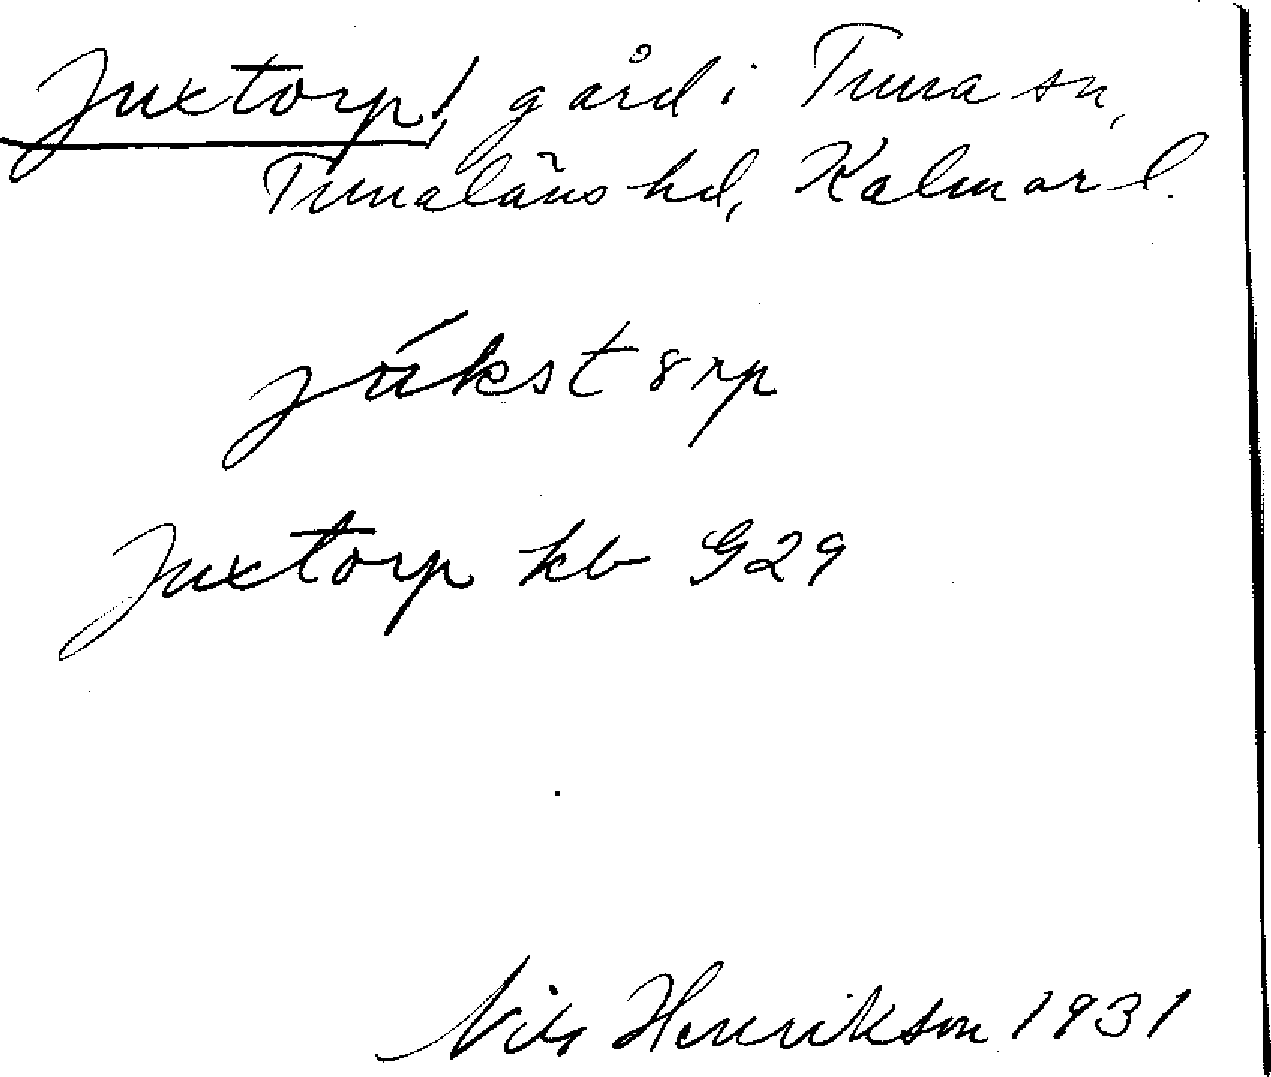 Juxtorp! gård i Tuna sn,
Tunaläns hd, Kalmar l.
júkst8rp
Juxtorp kb G29
Nils Henrikson 1931